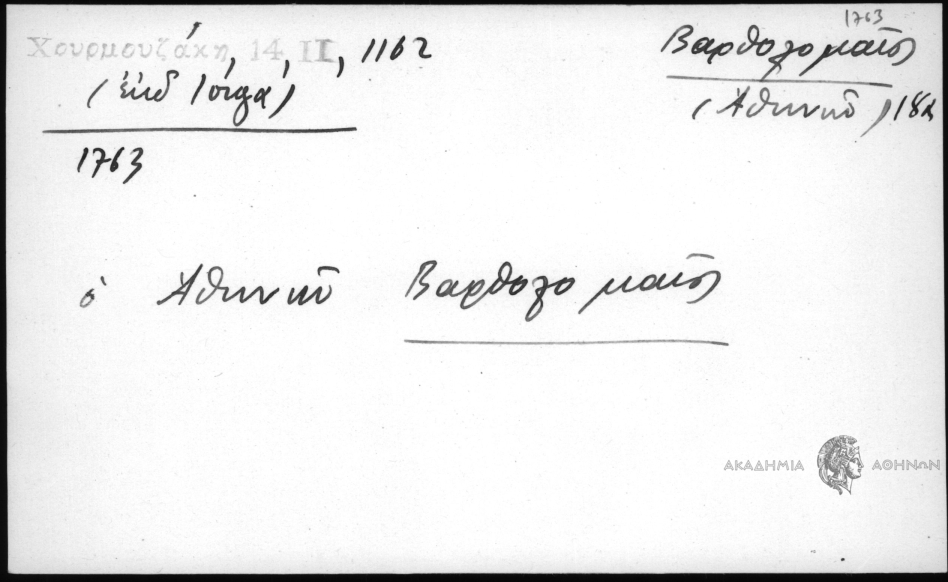 Χουρμουζάκη, 14 II, 1162
(ἐκδ Ἰόργα)
1763
1763
Βαρθολομαῖος
(Ἀθηνῶν) 18α
ὁ Ἀθηνῶν Βαρθολομαῖος
ΑΚΑΔΗΜΙΑ ΑΘΗΝΩΝ